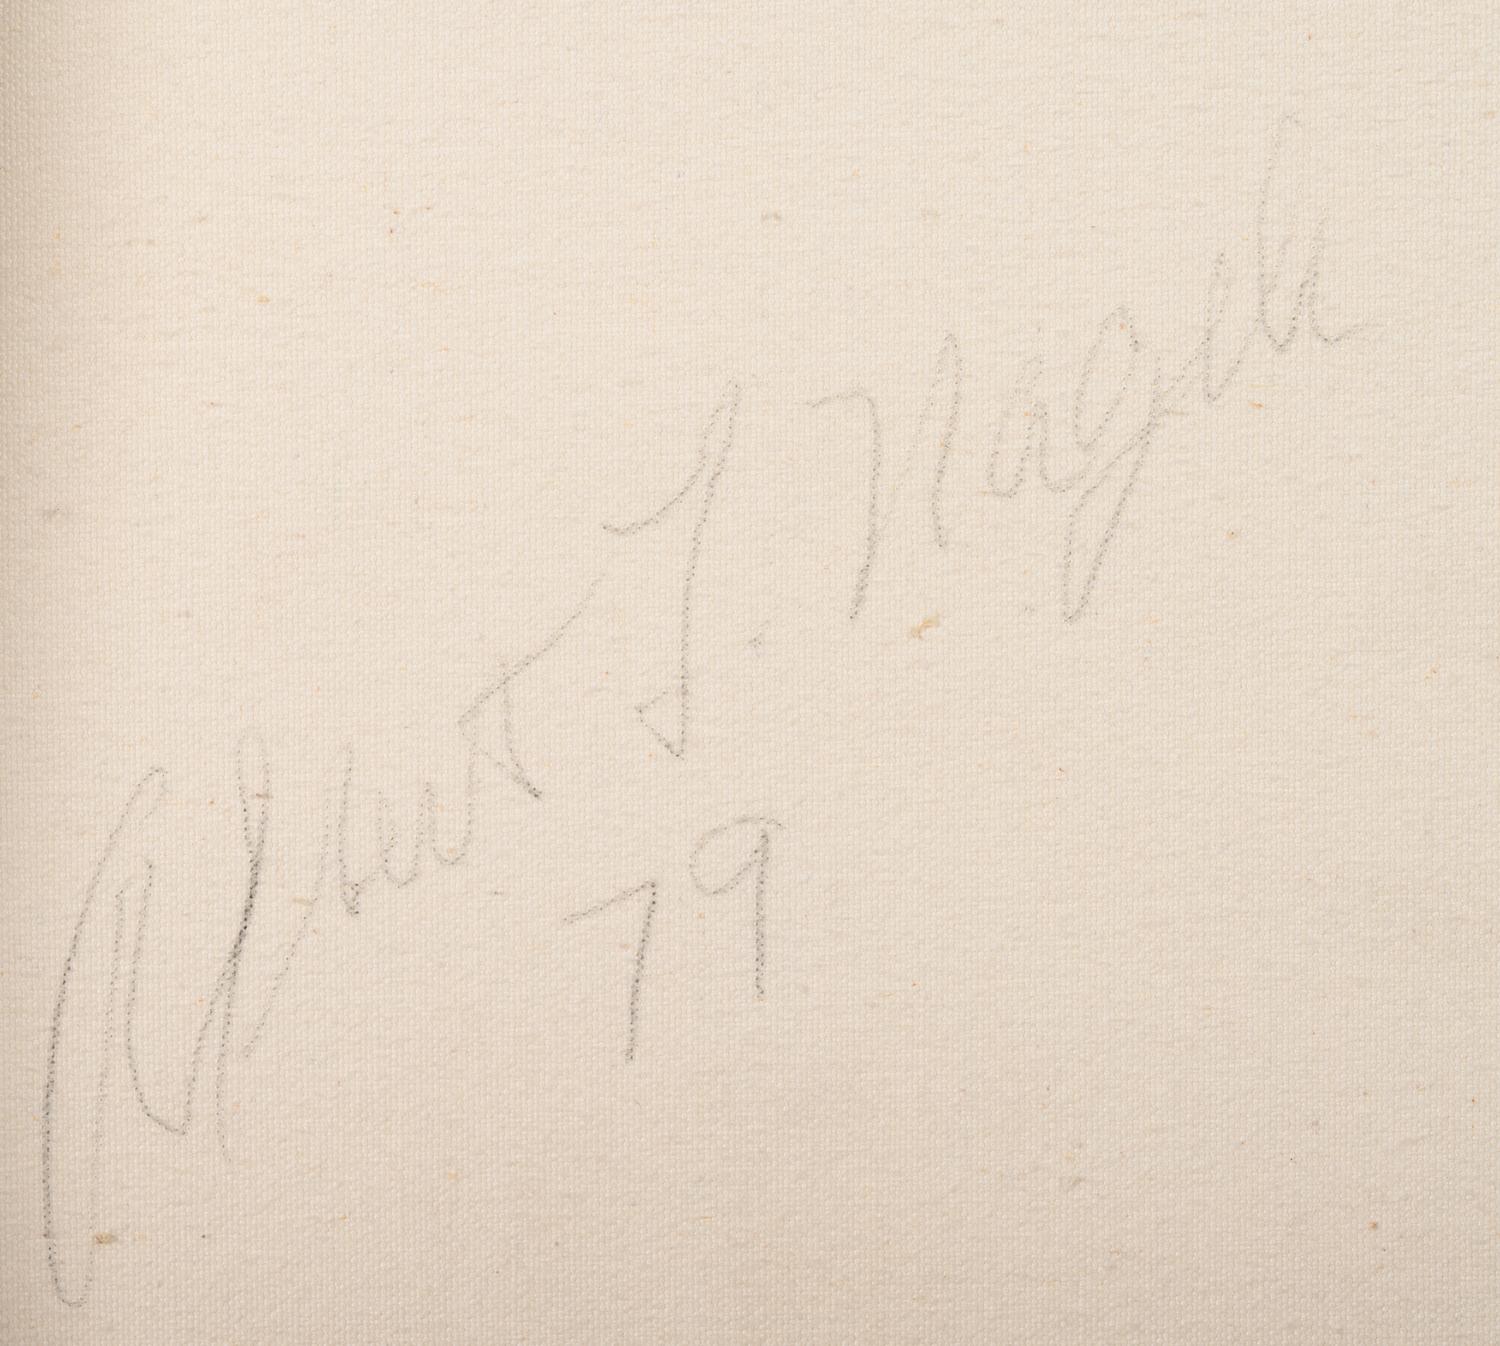 Albert J. Nagele
79